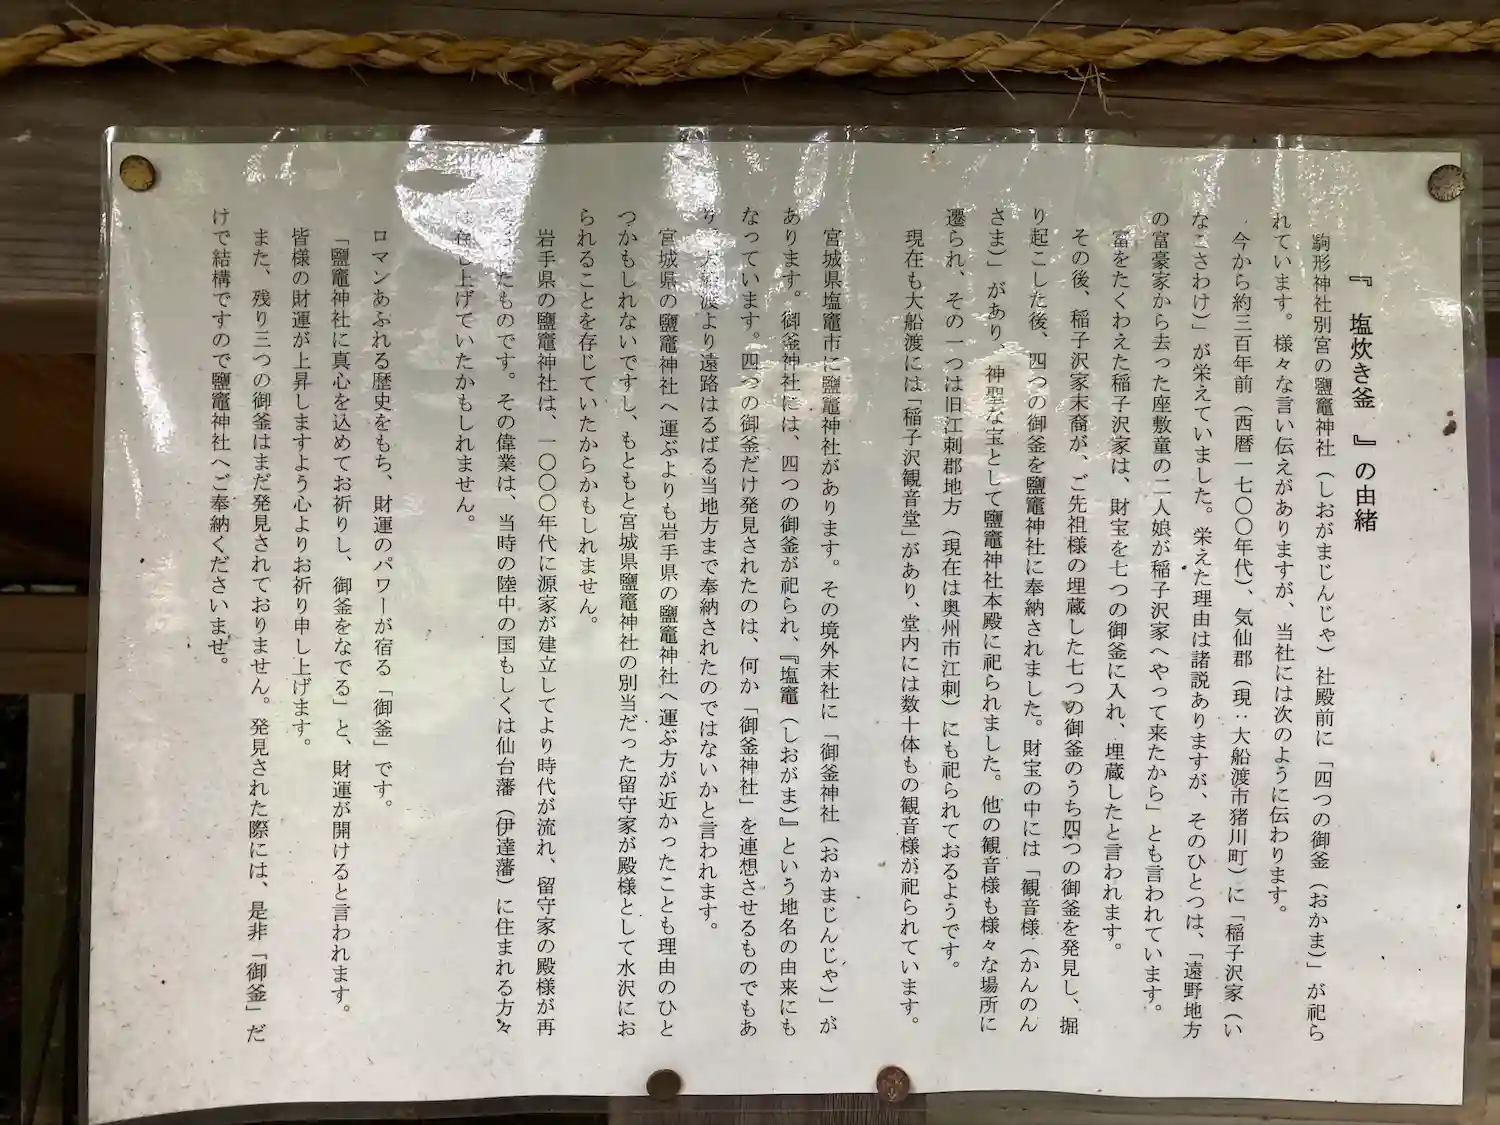 『 塩炊き釜 』の由緒
駒形神社別宮の鹽竈神社（しおがまじんじゃ）社殿前に「四つの御釜（おかま）」が祀ら
れています。様々な言い伝えがありますが、当社には次のように伝わります。
今から約三百年前（西暦一七〇〇年代）、気仙郡（現：大船渡市猪川町）に「稲子沢家（い
なごさわけ）」が栄えていました。栄えた理由は諸説ありますが、そのひとつは、「遠野地方
の富豪家から去った座敷童の二人娘が稲子沢家へやって来たから」とも言われています。
富をたくわえた稲子沢家は、財宝を七つの御釜に入れ、埋蔵したと言われます。
その後、稲子沢家末裔が、ご先祖様の埋蔵した七つの御釜のうち四つの御釜を発見し、掘
り起こした後、四つの御釜を鹽竈神社に奉納されました。財宝の中には「観音様（かんのん
さま）」があり、神聖な宝として鹽竈神社本殿に祀られました。他の観音様も様々な場所に
遷られ、その一つは旧江刺郡地方（現在は奥州市江刺）にも祀られておるようです。
現在も大船渡には「稲子沢観音堂」があり、堂内には数十体もの観音様が祀られています。
宮城県塩竈市に鹽竈神社があります。その境外末社に「御釜神社（おかまじんじゃ）」が
あります。御釜神社には、四つの御釜が祀られ、『塩竈（しおがま）』という地名の由来にも
なっています。四つの御釜だけ発見されたのは、何か「御釜神社」を連想させるものでもあ
り、大船渡より遠路はるばる当地方まで奉納されたのではないかと言われます。
宮城県の鹽竈神社へ運ぶよりも岩手県の鹽竈神社へ運ぶ方が近かったことも理由のひと
つかもしれないですし、もともと宮城県鹽竈神社の別当だった留守家が殿様として水沢にお
られることを存じていたからかもしれません。
岩手県の鹽竈神社は、一〇〇〇年代に源家が建立してより時代が流れ、留守家の殿様が再
たものです。その偉業は、当時の陸中の国もしくは仙台藩（伊達藩）に住まれる方々
存じ上げていたかもしれません。
ロマンあふれる歴史をもち、財運のパワーが宿る「御釜」です。
「鹽竈神社に真心を込めてお祈りし、御釜をなでる」と、財運が開けると言われます。
皆様の財運が上昇しますよう心よりお祈り申し上げます。
また、残り三つの御釜はまだ発見されておりません。発見された際には、是非「御釜」だ
けで結構ですので鹽竈神社へご奉納くださいませ。